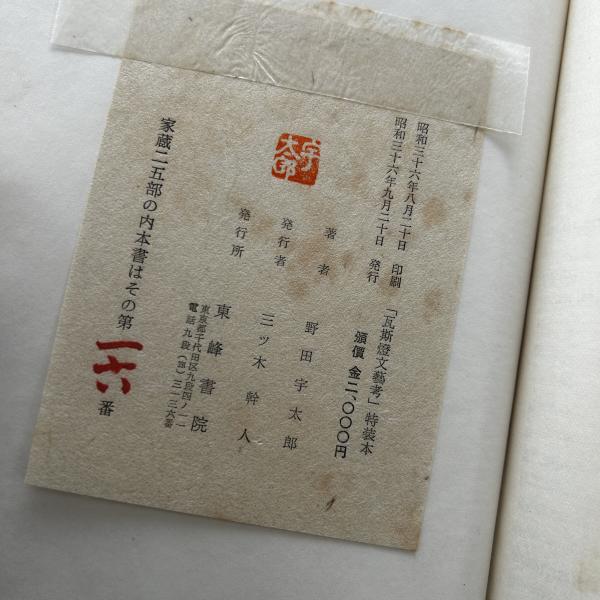 昭和三十六年八月二十日　印刷
昭和三十六年九月二十日　発行
「瓦斯燈文藝考」特装本
頒價　金二、〇〇〇円
著者　野田宇太郎
発行者　三ツ木幹人
発行所　東峰書院
東京都千代田区九段四ノ一一
電話九段（331）三一三六番
宇太郎
家蔵二五部の内本書はその第一六番